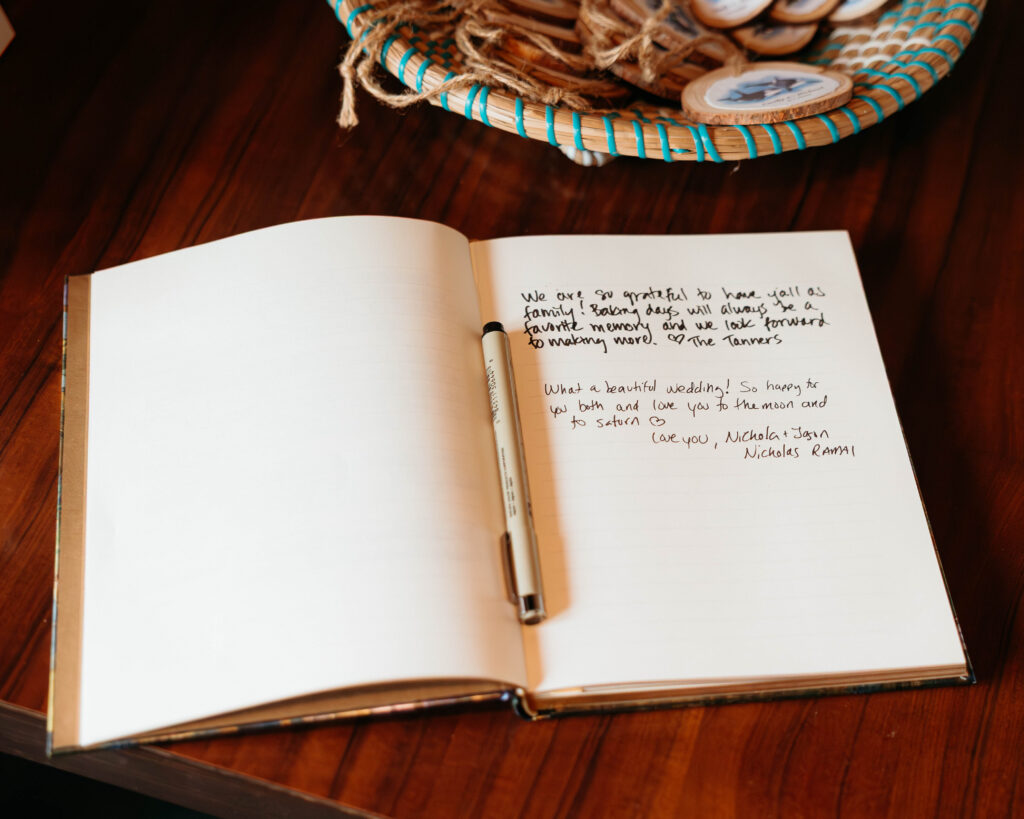 We are so grateful to have y'all as
family! Baking days will always be a
favorite memory and we look forward
to making more. ♡ The Tanners
What a beautiful wedding! So happy for
you both and love you to the moon and
to saturn ♡
Love you, Nichola + Jason
Nicholas RAMAI